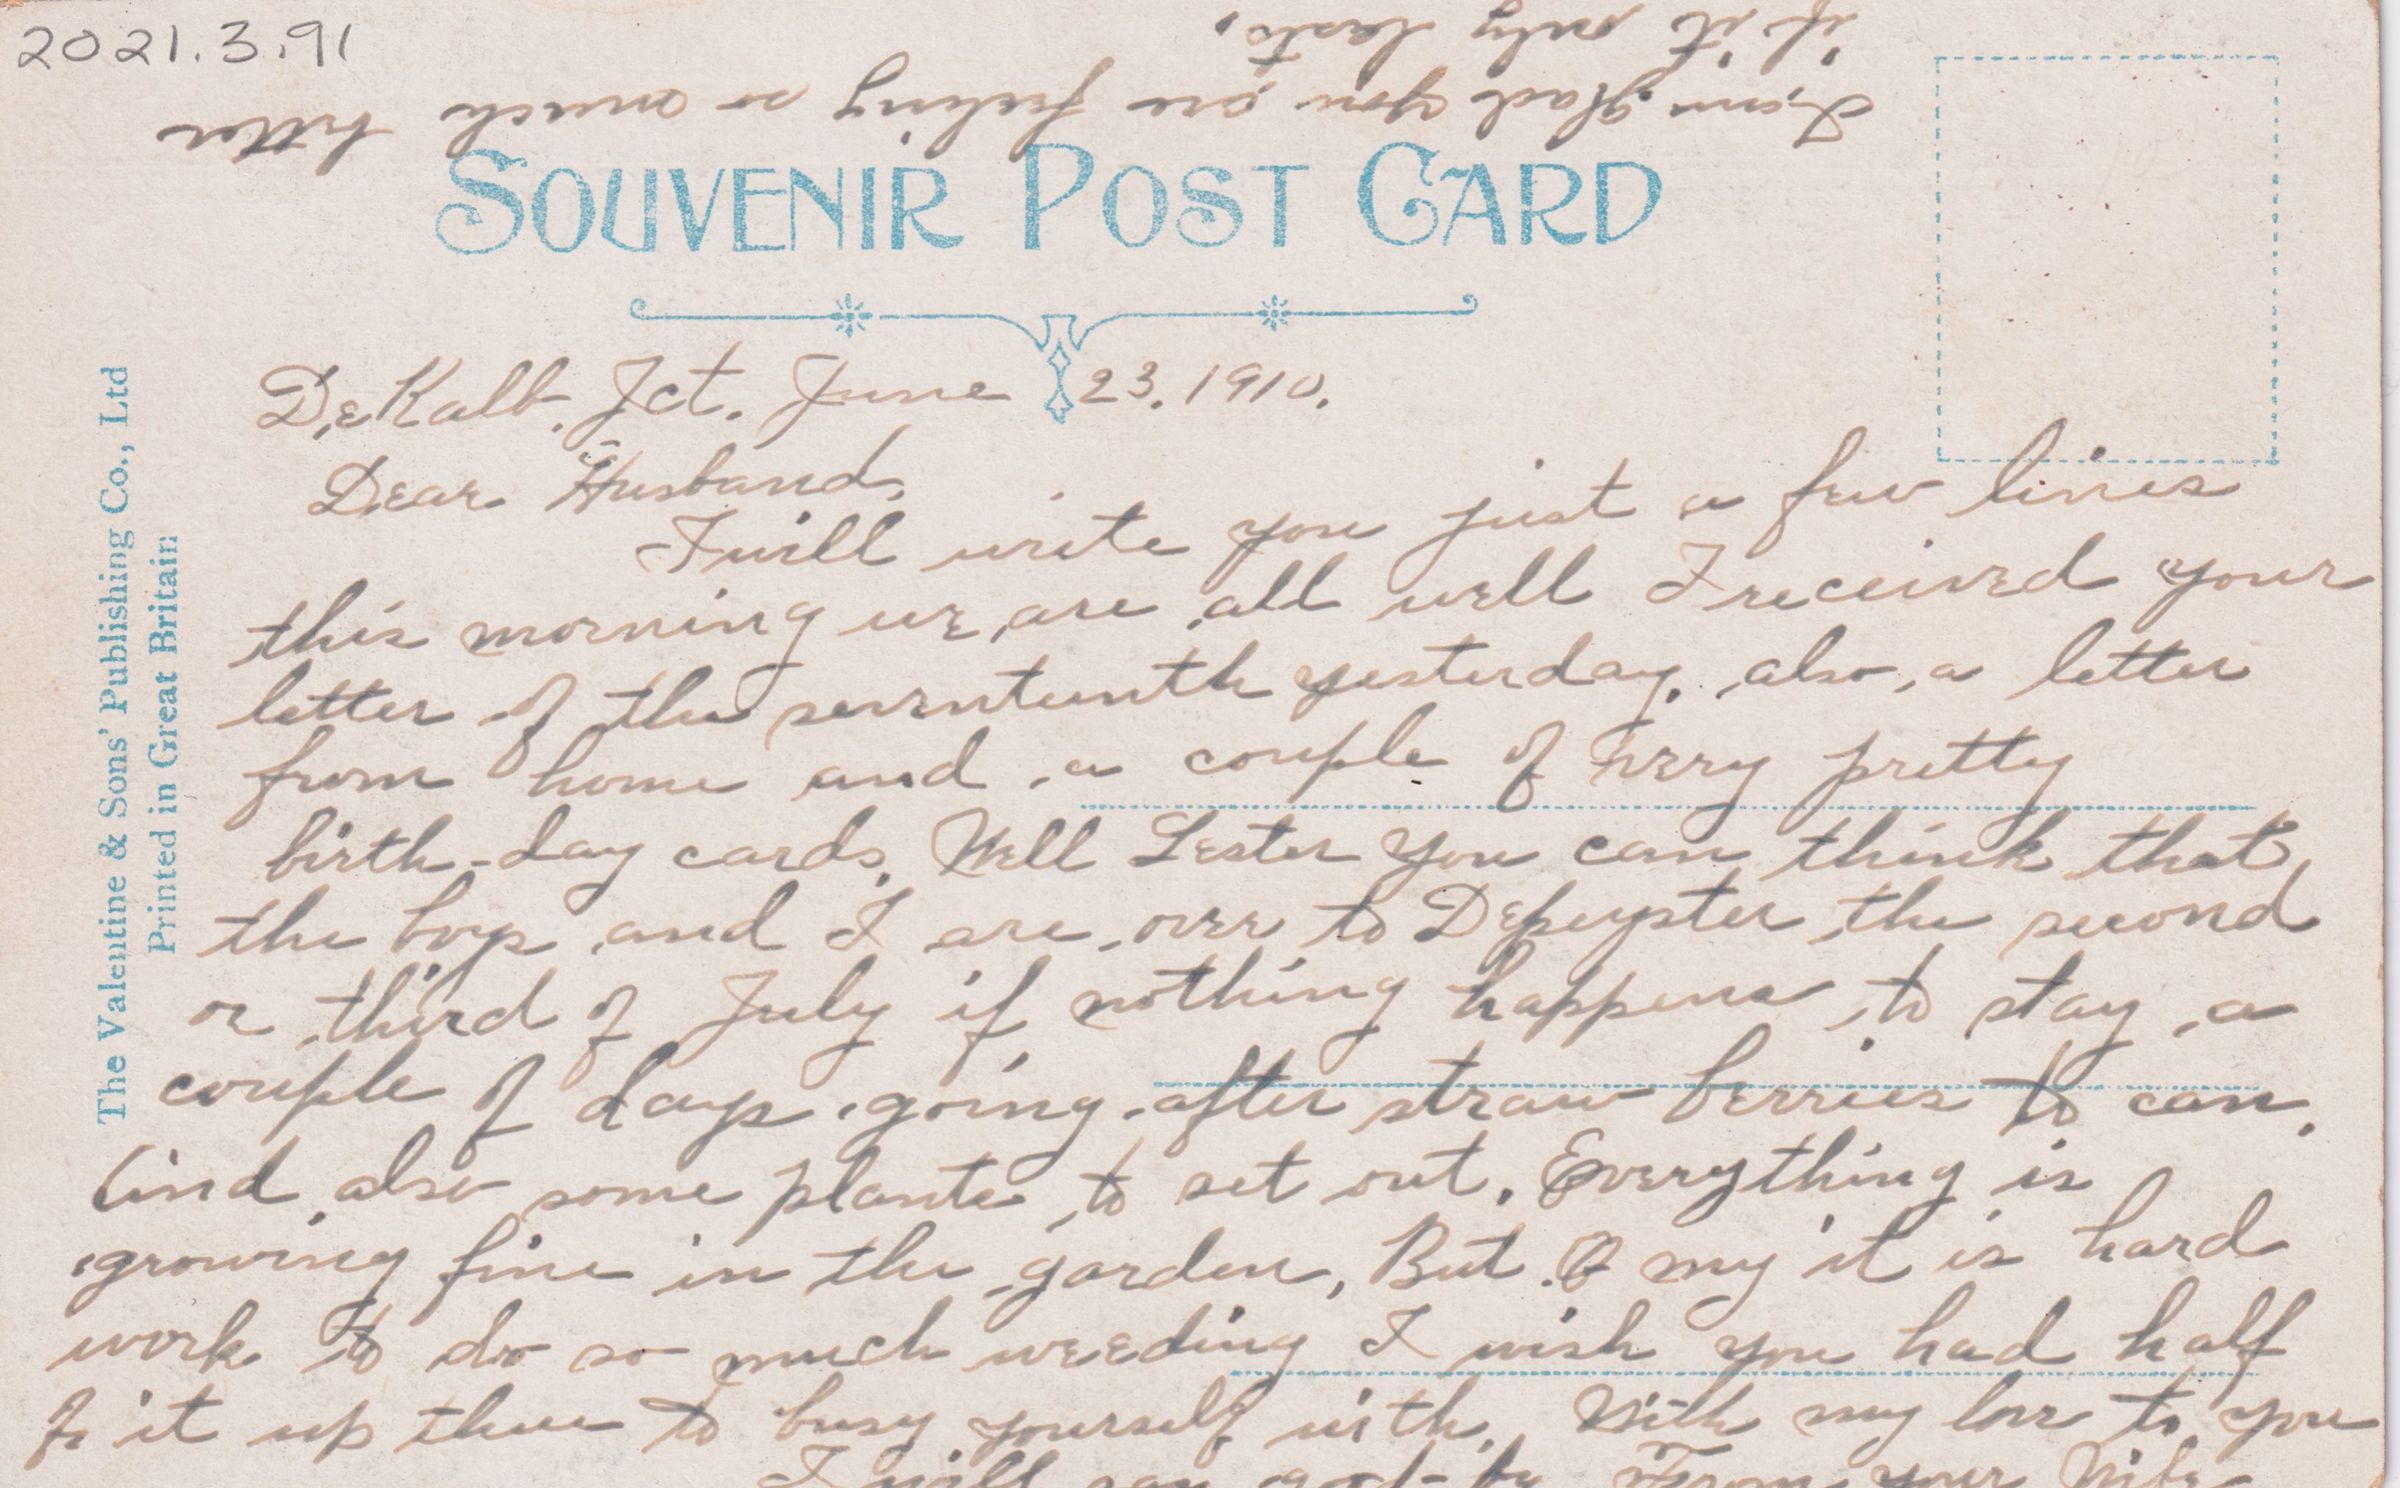 2021.3.91
I am glad you are feeling so much better
if it only lasts.
SOUVENIR POST CARD
The Valentine & Sons' Publishing Co., Ltd
Printed in Great Britain
DeKalb. Jct. June 23. 1910.
Dear Husband,
I will write you just a few lines
this morning we are all well I received your
letter of the seventeenth yesterday. also a letter
from home and a couple of very pretty
birth-day cards. Well Lester you can think that
the boys and I are over to Depeyster the second
or third of July if nothing happens to stay a
couple of days going after straw berries to can.
And also some plants to set out. Everything is
growing fine in the garden, But O my it is hard
work to do so much weeding I wish you had half
of it up there to busy yourself with. With my love to you
I will say good-by From your Wife